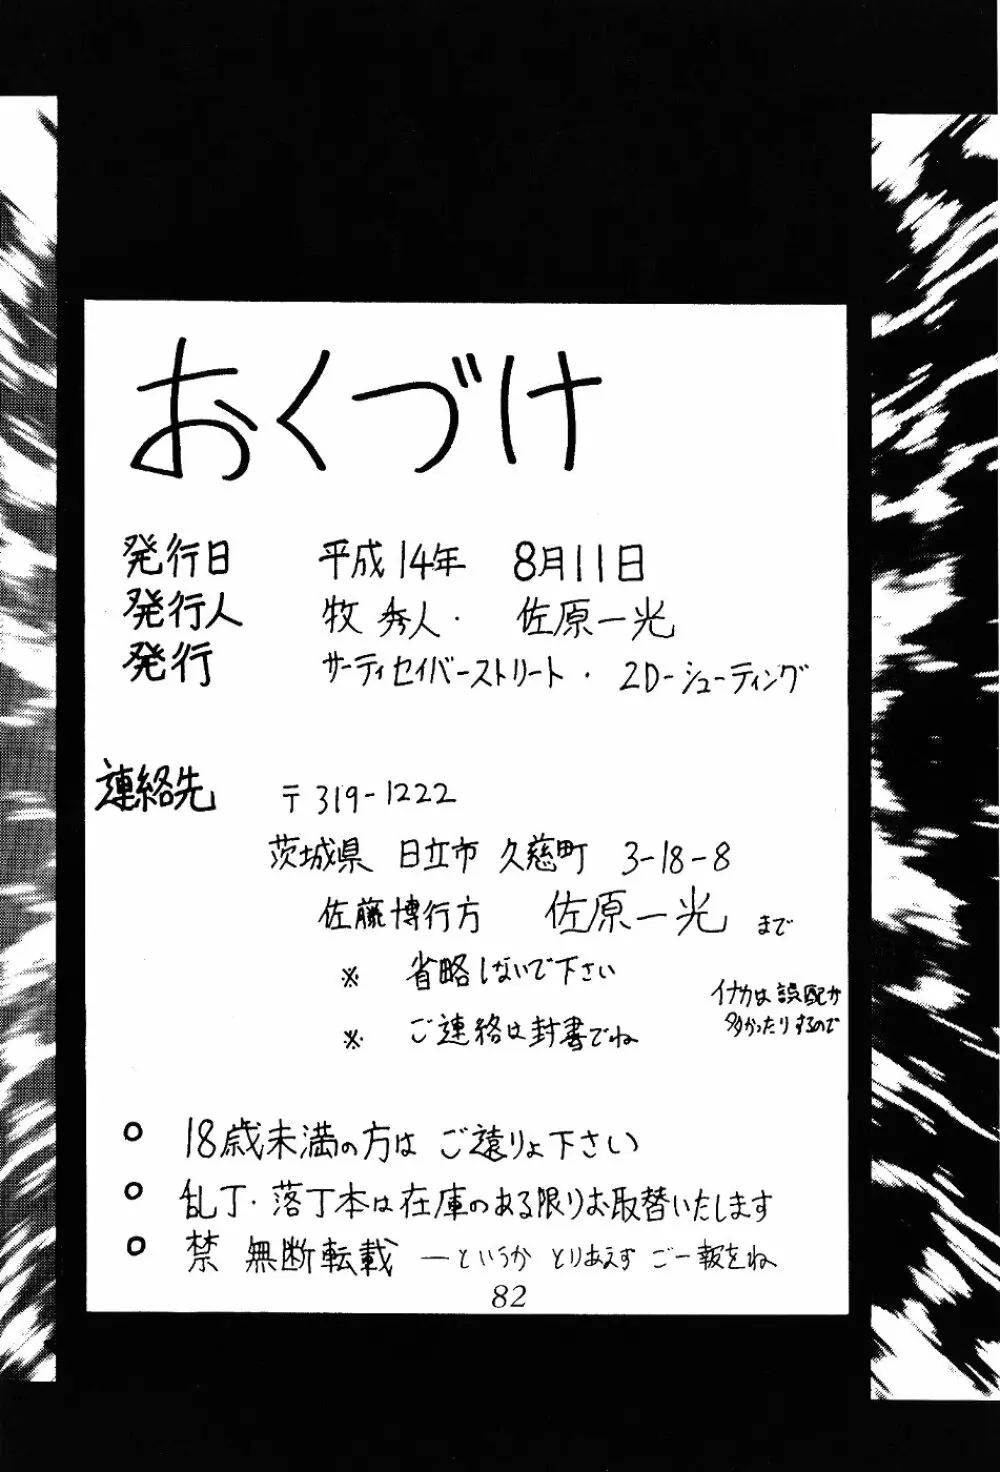 おくづけ
発行日 平成14年 8月11日
発行人 牧 秀人・ 佐原一光
発行 サーティセイバーストリート・2D-シューティング
連絡先 〒319-1222
茨城県 日立市 久慈町 3-18-8
佐藤博行方 佐原一光 まで
※ 省略しないで下さい
イナカは誤配が
多かったりするので
※ ご連絡は封書でね
○ 18歳未満の方は ご遠りょ下さい
○ 乱丁・落丁本は在庫のある限りお取替いたします
○ 禁 無断転載 ―というか とりあえず ご一報をね
82